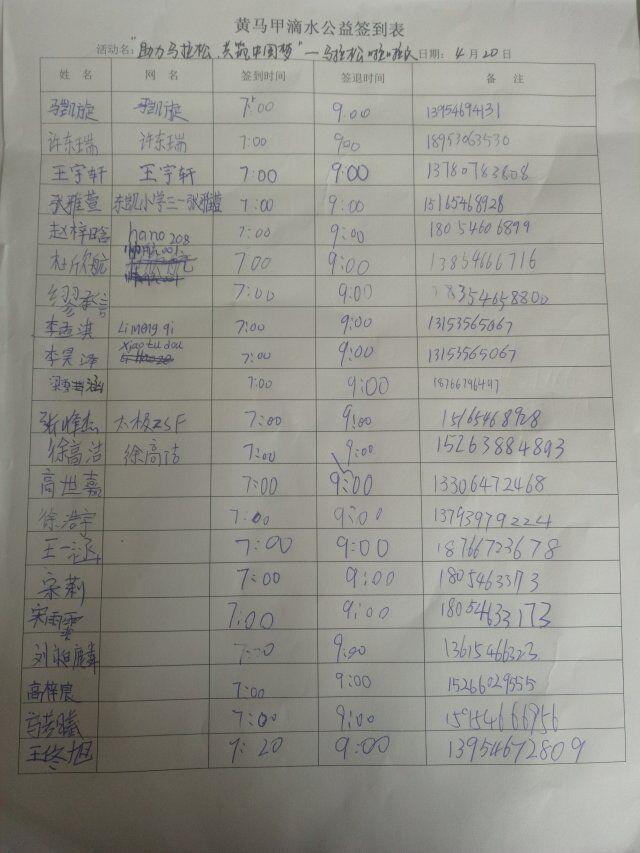 黄马甲滴水公益签到表
活动名:"助力马拉松,共筑中国梦"—马拉松啦啦队 日期: 4月20日
姓 名 网 名 签到时间 签退时间 备 注
马凯旋 马凯旋 7:00 9:00 13954694131
许东瑞 许东瑞 7:00 9:00 18953063530
王宇轩 王宇轩 7:00 9:00 13780783608
张雅萱 东凯小学三一张雅萱 7:00 9:00 15165468928
赵梓晗 hano208 7:00 9:00 18054606899
杜欣航 7:00 9:00 13854666716
7:00 9:00 18354658800
李孟淇 Li meng qi 7:00 9:00 13153565067
李昊泽 xiao tu dou 7:00 9:00 13153565067
梁 涵 7:00 9:00 18766796447
张峰杰 太极ZSF 7:00 9:00 15165468928
徐高洁 徐高洁 7:00 9:00 15263884893
高世嘉 7:00 9:00 13306472468
徐浩宇 7:00 9:00 13793979224
王一涵 7:00 9:00 18766723678
宋莉 7:00 9:00 1805463373
宋雨雯 7:00 9:00 18054633173
刘 麟 7:00 9:00 13615466323
高梓宸 7:00 9:00 15266029555
7:00 9:00 15954666956
王佟旭 7:20 9:00 13954672809